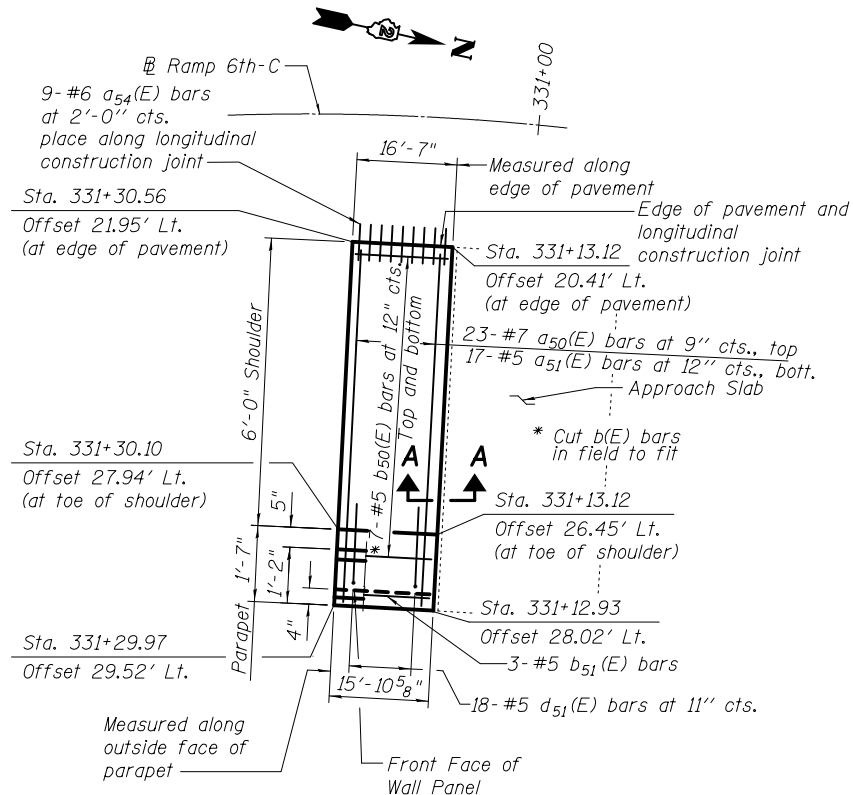 N
2
331+00
℄ Ramp 6th-C
9-#6 a54(E) bars
at 2'-0" cts.
place along longitudinal
construction joint
16'-7"
Measured along
edge of pavement
Sta. 331+30.56
Offset 21.95' Lt.
(at edge of pavement)
Edge of pavement and
longitudinal
construction joint
Sta. 331+13.12
Offset 20.41' Lt.
(at edge of pavement)
23-#7 a50(E) bars at 9" cts., top
17-#5 a51(E) bars at 12" cts., bott.
Approach Slab
* Cut b(E) bars
in field to fit
6'-0" Shoulder
*7-#5 b50(E) bars at 12" cts.
Top and bottom
A A
Sta. 331+30.10
Offset 27.94' Lt.
(at toe of shoulder)
Sta. 331+13.12
Offset 26.45' Lt.
(at toe of shoulder)
5"
1'-7"
1'-2"
4"
Parapet
Sta. 331+12.93
Offset 28.02' Lt.
Sta. 331+29.97
Offset 29.52' Lt.
3-#5 b51(E) bars
15'-10 5/8"
18-#5 d51(E) bars at 11" cts.
Measured along
outside face of
parapet
Front Face of
Wall Panel